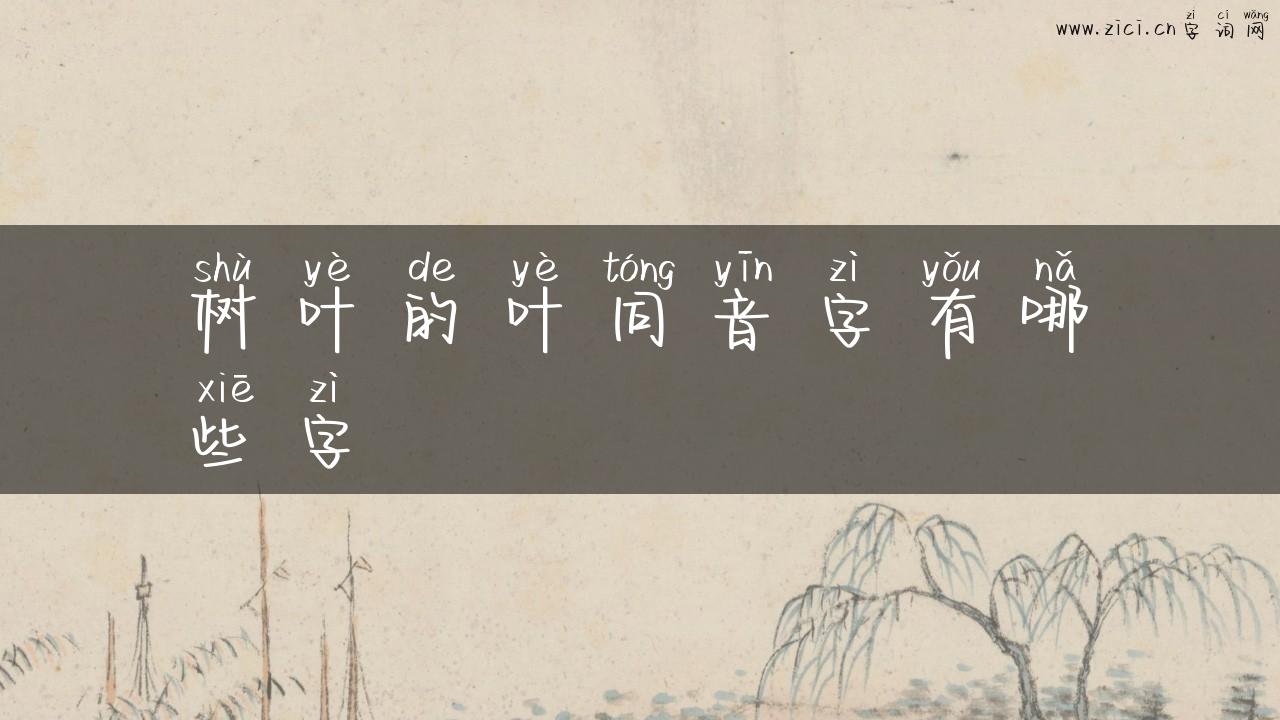 zì cí wǎng
www.zici.cn 字 词 网
shù yè de yè tóng yīn zì yǒu nǎ
树 叶 的 叶 同 音 字 有 哪
xiē zì
些 字